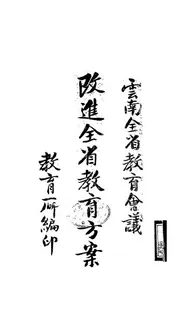 雲南全省教育會議
改進全省教育方案
教育所編印